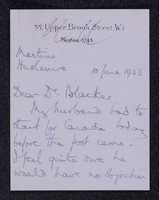 55, Upper Brook Street, W.1
Mayfair
10 June 1933
Dear Dr. Blacker
My husband had to
start for Canada today
before the post came.
I feel quite sure he
would have no objection